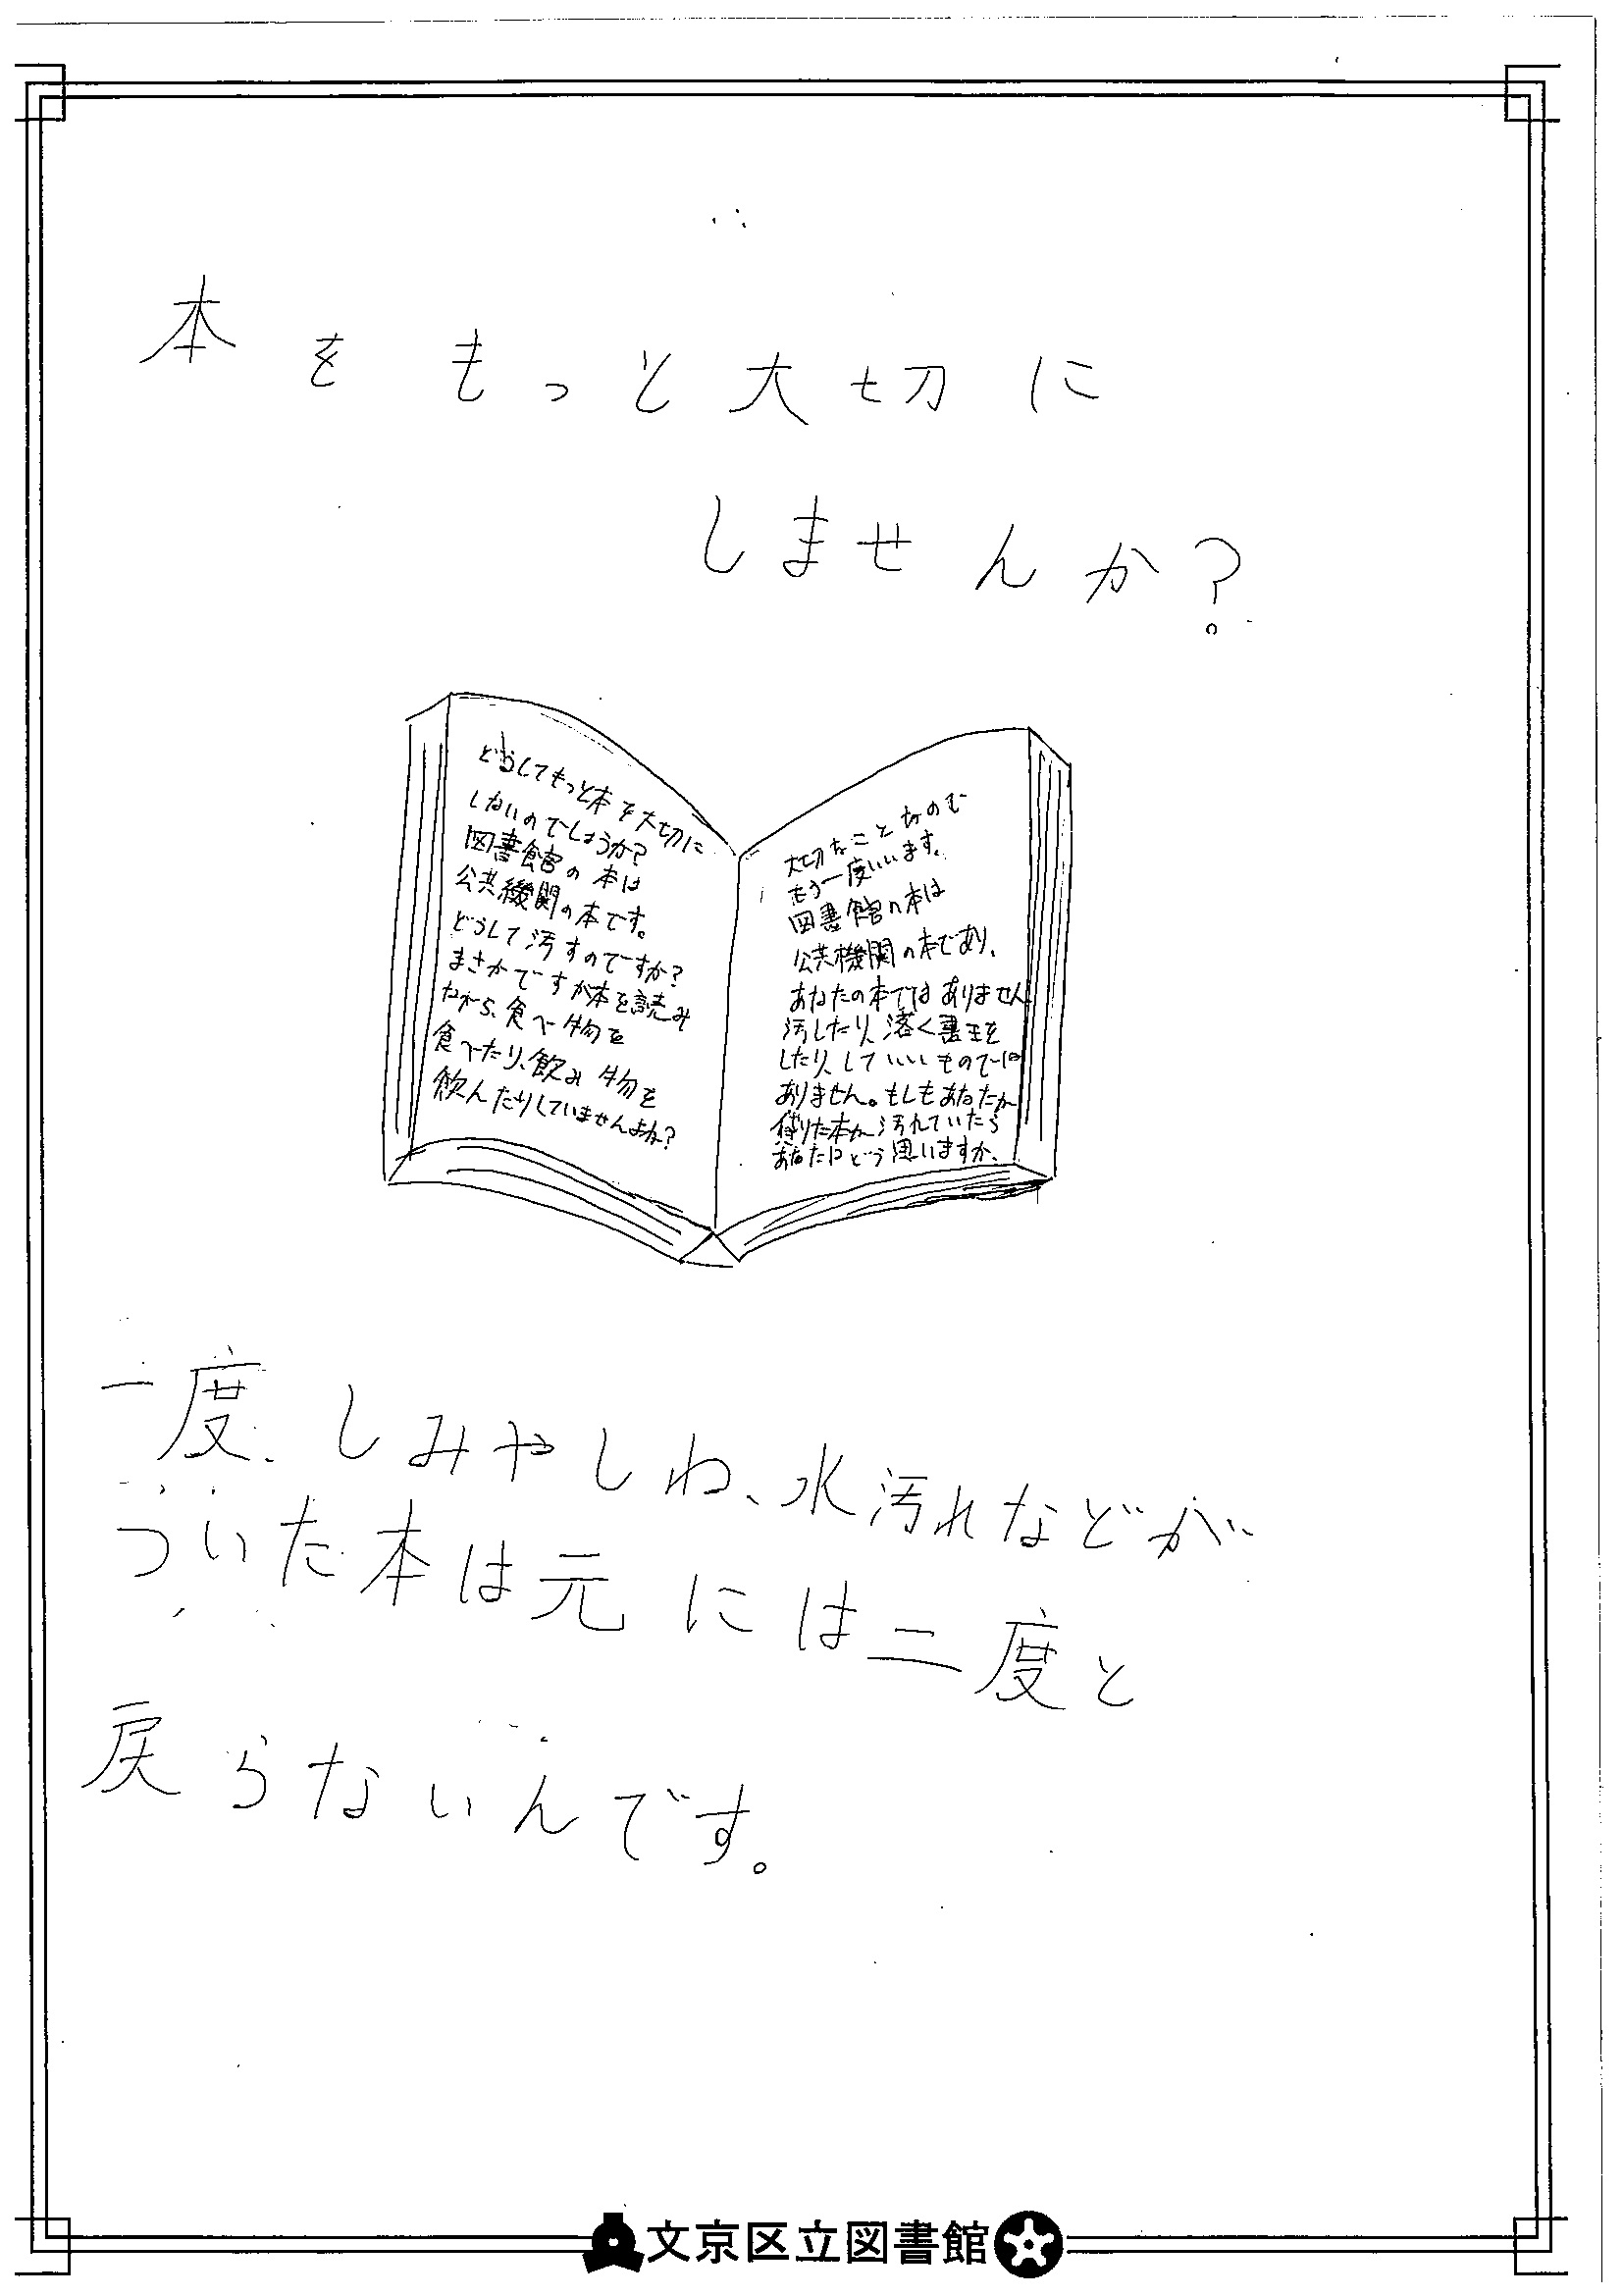 本をもっと大切に
しませんか?
どうしてもっと本を大切に
しないのでしょうか?
図書館の本は
公共機関の本です。
どうして汚すのですか?
まさかですが本を読み
ながら、食べ物を
食べたり、飲み物を
飲んだりしていませんよね?
大切なことなので
もう一度いいます。
図書館の本は
公共機関の本であり、
あなたの本ではありません
汚したり、落く書きを
したり、していいものでは
ありません。もしもあなたが
借りた本が汚れていたら
あなたはどう思いますか、
一度、しみやしわ、水汚れなどが
ついた本は元には二度と
戻らないんです。
文京区立図書館